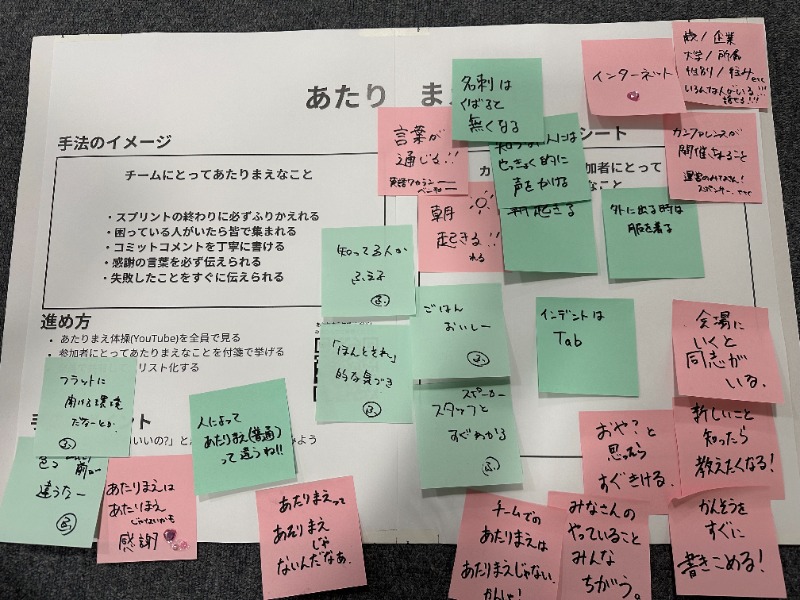 あたり ま
手法のイメージ
チームにとってあたりまえなこと
・スプリントの終わりに必ずふりかえれる
・困っている人がいたら皆で集まれる
・コミットコメントを丁寧に書ける
・感謝の言葉を必ず伝えられる
・失敗したことをすぐに伝えられる
進め方
・あたりまえ体操(YouTube)を全員で見る
・参加者にとってあたりまえなことを付箋で挙げる
リスト化する
シート
加者にとって
なこと
名刺は
くばると
無くなる
インターネット
歳/企業
大学/所属
性別/住み etc
いろんな人がいる!!!
話せる!!!
言葉が
通じる!!
人には
せっきょく的に
声をかける
カンファレンスが
開催されること
運営のみなさん!
スポンサー、etc
朝
起きる!!
れる
朝起きる
外に出る時は
服を着る
知ってる人が
ふえる
ごはん
おいしー
インデントは
Tab
会場に
いくと
同志が
いる。
「ほんとそれ」
的な気づき
フラットに
聞ける環境
だなーとか
人によって
あたりまえ(普通)
って違うわ!!
スピーカー
スタッフと
すぐわかる
おや?と
思ったら
すぐきける。
新しいこと
知ったら
教えたくなる!
違うなー
あたりまえは
あたりまえ
じゃないかも
感謝
あたりまえって
あたりまえ
じゃ
ないんだなぁ。
チームでの
あたりまえは
あたりまえじゃない。
かんしゃ!
みなさんの
やっていること
みんな
ちがう。
かんそうを
すぐに
書きこめる!